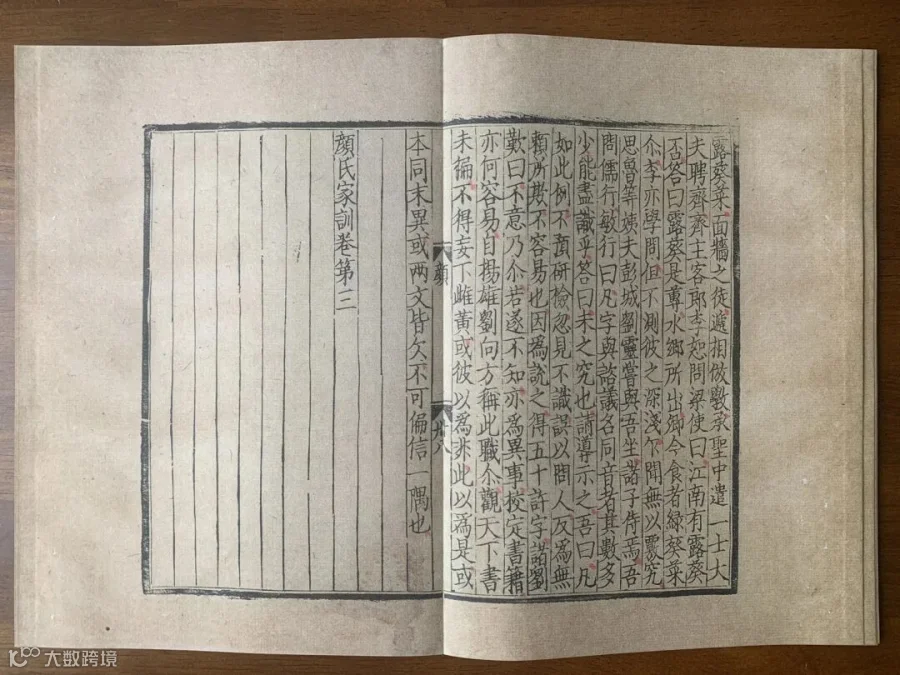 露葵菜面牆之徒遞相倣斆承聖中遣一士大
夫聘齊齊主客郎李恕問梁使曰江南有露葵
否答曰露葵是蓴水鄉所出卿今食者緑葵菜
尒李亦學問但不測彼之深淺乍聞無以覈究
思魯等姨夫彭城劉靈嘗與吾坐諸子侍焉吾
問儒行敏行曰凡字與諮議名同音者其數多
少能盡識乎答曰未之究也請導示之吾曰凡
如此例不預研檢忽見不識誤以問人反爲無
賴所欺不容易也因爲說之得五十許字諸劉
歎曰不意乃尒若遂不知亦爲異事校定書籍
亦何容易自揚雄劉向方稱此職尒觀天下書
未徧不得妄下雌黃或彼以爲非此以爲是或
顏
卅八
本同末異或兩文皆欠不可偏信一隅也
顏氏家訓卷第三
大数跨境